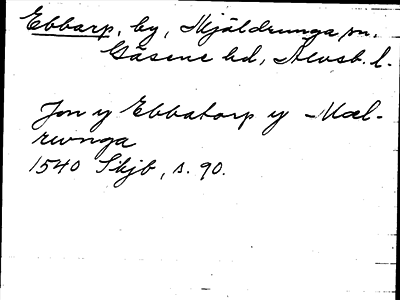 Ebbarp, by, Skjäldrunga sn,
Gäsene hd, Älvsb. l.
Jon y Ebbatorp y Mæl-
rwnga
1540 Skjb, s. 90.